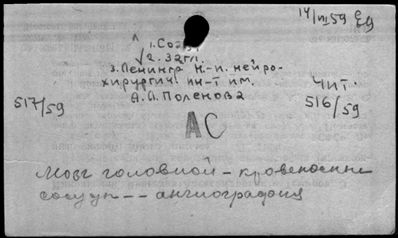 14/III 59 Е9
1. Соз
2. 32гл.
3. Ленингр н-и. нейро-
хирургич. ин-т им.
А. Л. Поленова
Чит.
517/59
516/59
АС
Мозг головной - кровеносные
сосуды -- ангиография